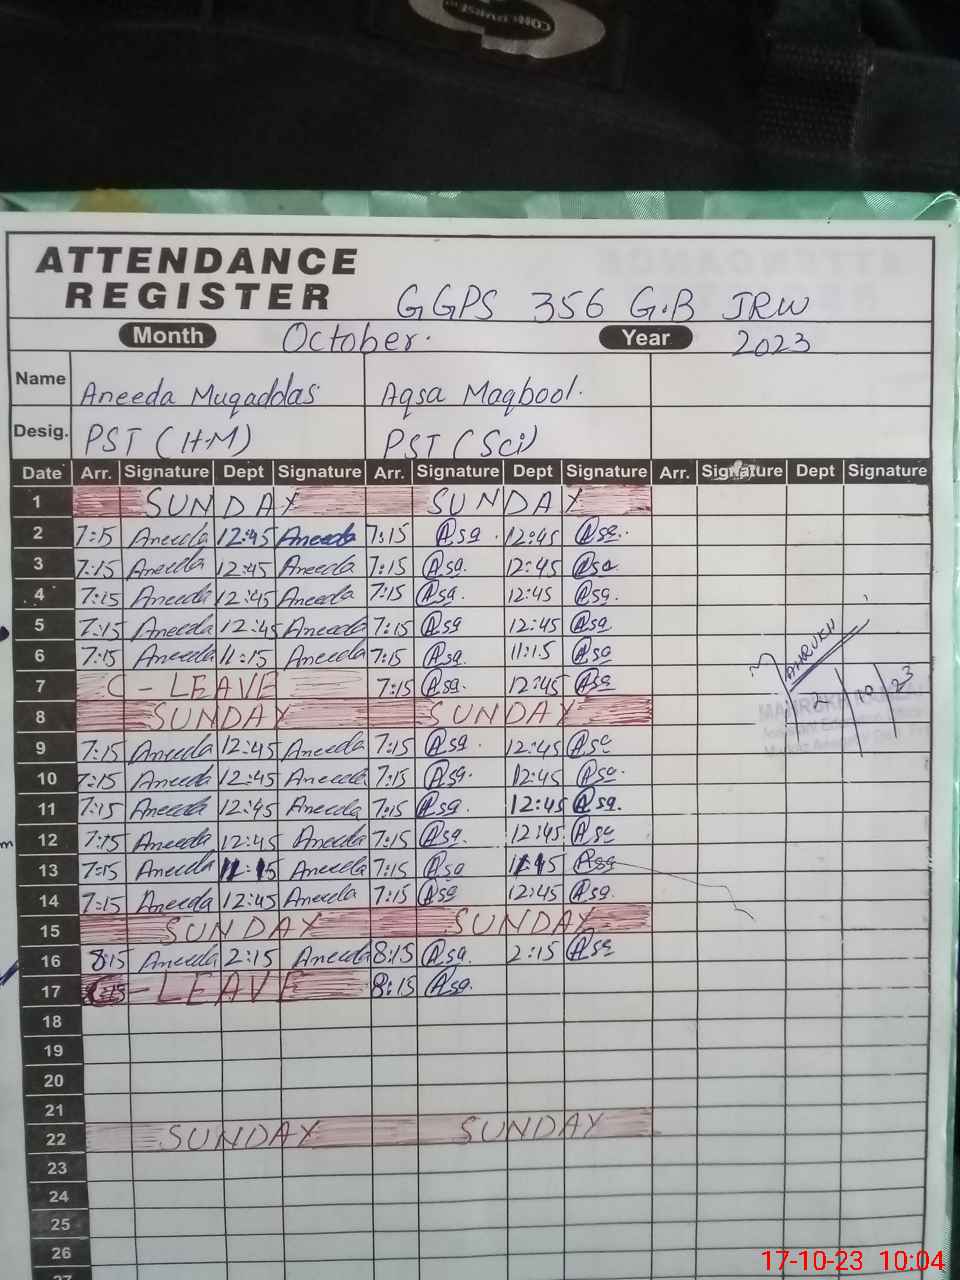 ATTENDANCE
REGISTER
GGPS 356 G.B JRW
Month October. Year 2023
Name Aneeda Muqaddas Aqsa Maqbool.
Desig. PST (H.M) PST (Sci)
Date Arr. Signature Dept Signature Arr. Signature Dept Signature Arr. Signature Dept Signature
1 SUNDAY SUNDAY
2 7:15 Aneeda 12:45 Aneeda 7:15 Asq 12:45 Asq.
3 7:15 Aneeda 12:45 Aneeda 7:15 Asq. 12:45 Asq
4 7:15 Aneeda 12:45 Aneeda 7:15 Asq. 12:45 Asq.
5 7:15 Aneeda 12:45 Aneeda 7:15 Asq 12:45 Asq
6 7:15 Aneeda 11:15 Aneeda 7:15 Asq. 11:15 Asq
7 C-LEAVE 7:15 Asq. 12:45 Asq
8 SUNDAY SUNDAY
MAHRUKH
2 10 23
9 7:15 Aneeda 12:45 Aneeda 7:15 Asq. 12:45 Asq
10 7:15 Aneeda 12:45 Aneeda 7:15 Asq. 12:45 Asq.
11 7:15 Aneeda 12:45 Aneeda 7:15 Asq. 12:45 Asq.
12 7:15 Aneeda 12:45 Aneeda 7:15 Asq. 12:45 Asq
13 7:15 Aneeda 11:15 Aneeda 7:15 Asq 11:15 Asq
14 7:15 Aneeda 12:45 Aneeda 7:15 Asq 12:45 Asq.
15 SUNDAY SUNDAY
16 8:15 Aneeda 2:15 Aneeda 8:15 Asq. 2:15 Asq
17 C-LEAVE 8:15 Asq.
18
19
20
21
22 SUNDAY SUNDAY
23
24
25
26
27
17-10-23 10:04